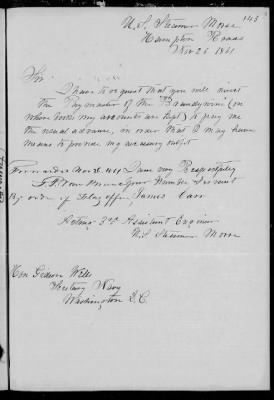 143
U.S. Steamer Morse
Hampton Roads
Nov 26 1861
Sir
I have to request that you will direct
the Paymaster of the Brandywine (on
whose books my accounts are kept) to pay me
the usual advance, in order that I may have
means to provide my necessary outfit
Forwarded Nov 26 1861 I am very Respectfully
Your Humble Servant
By order of James Carr
Acting 3rd Assistant Engineer
U.S. Steamer Morse
Hon Gideon Wells
Secretary Navy
Washington D.C.